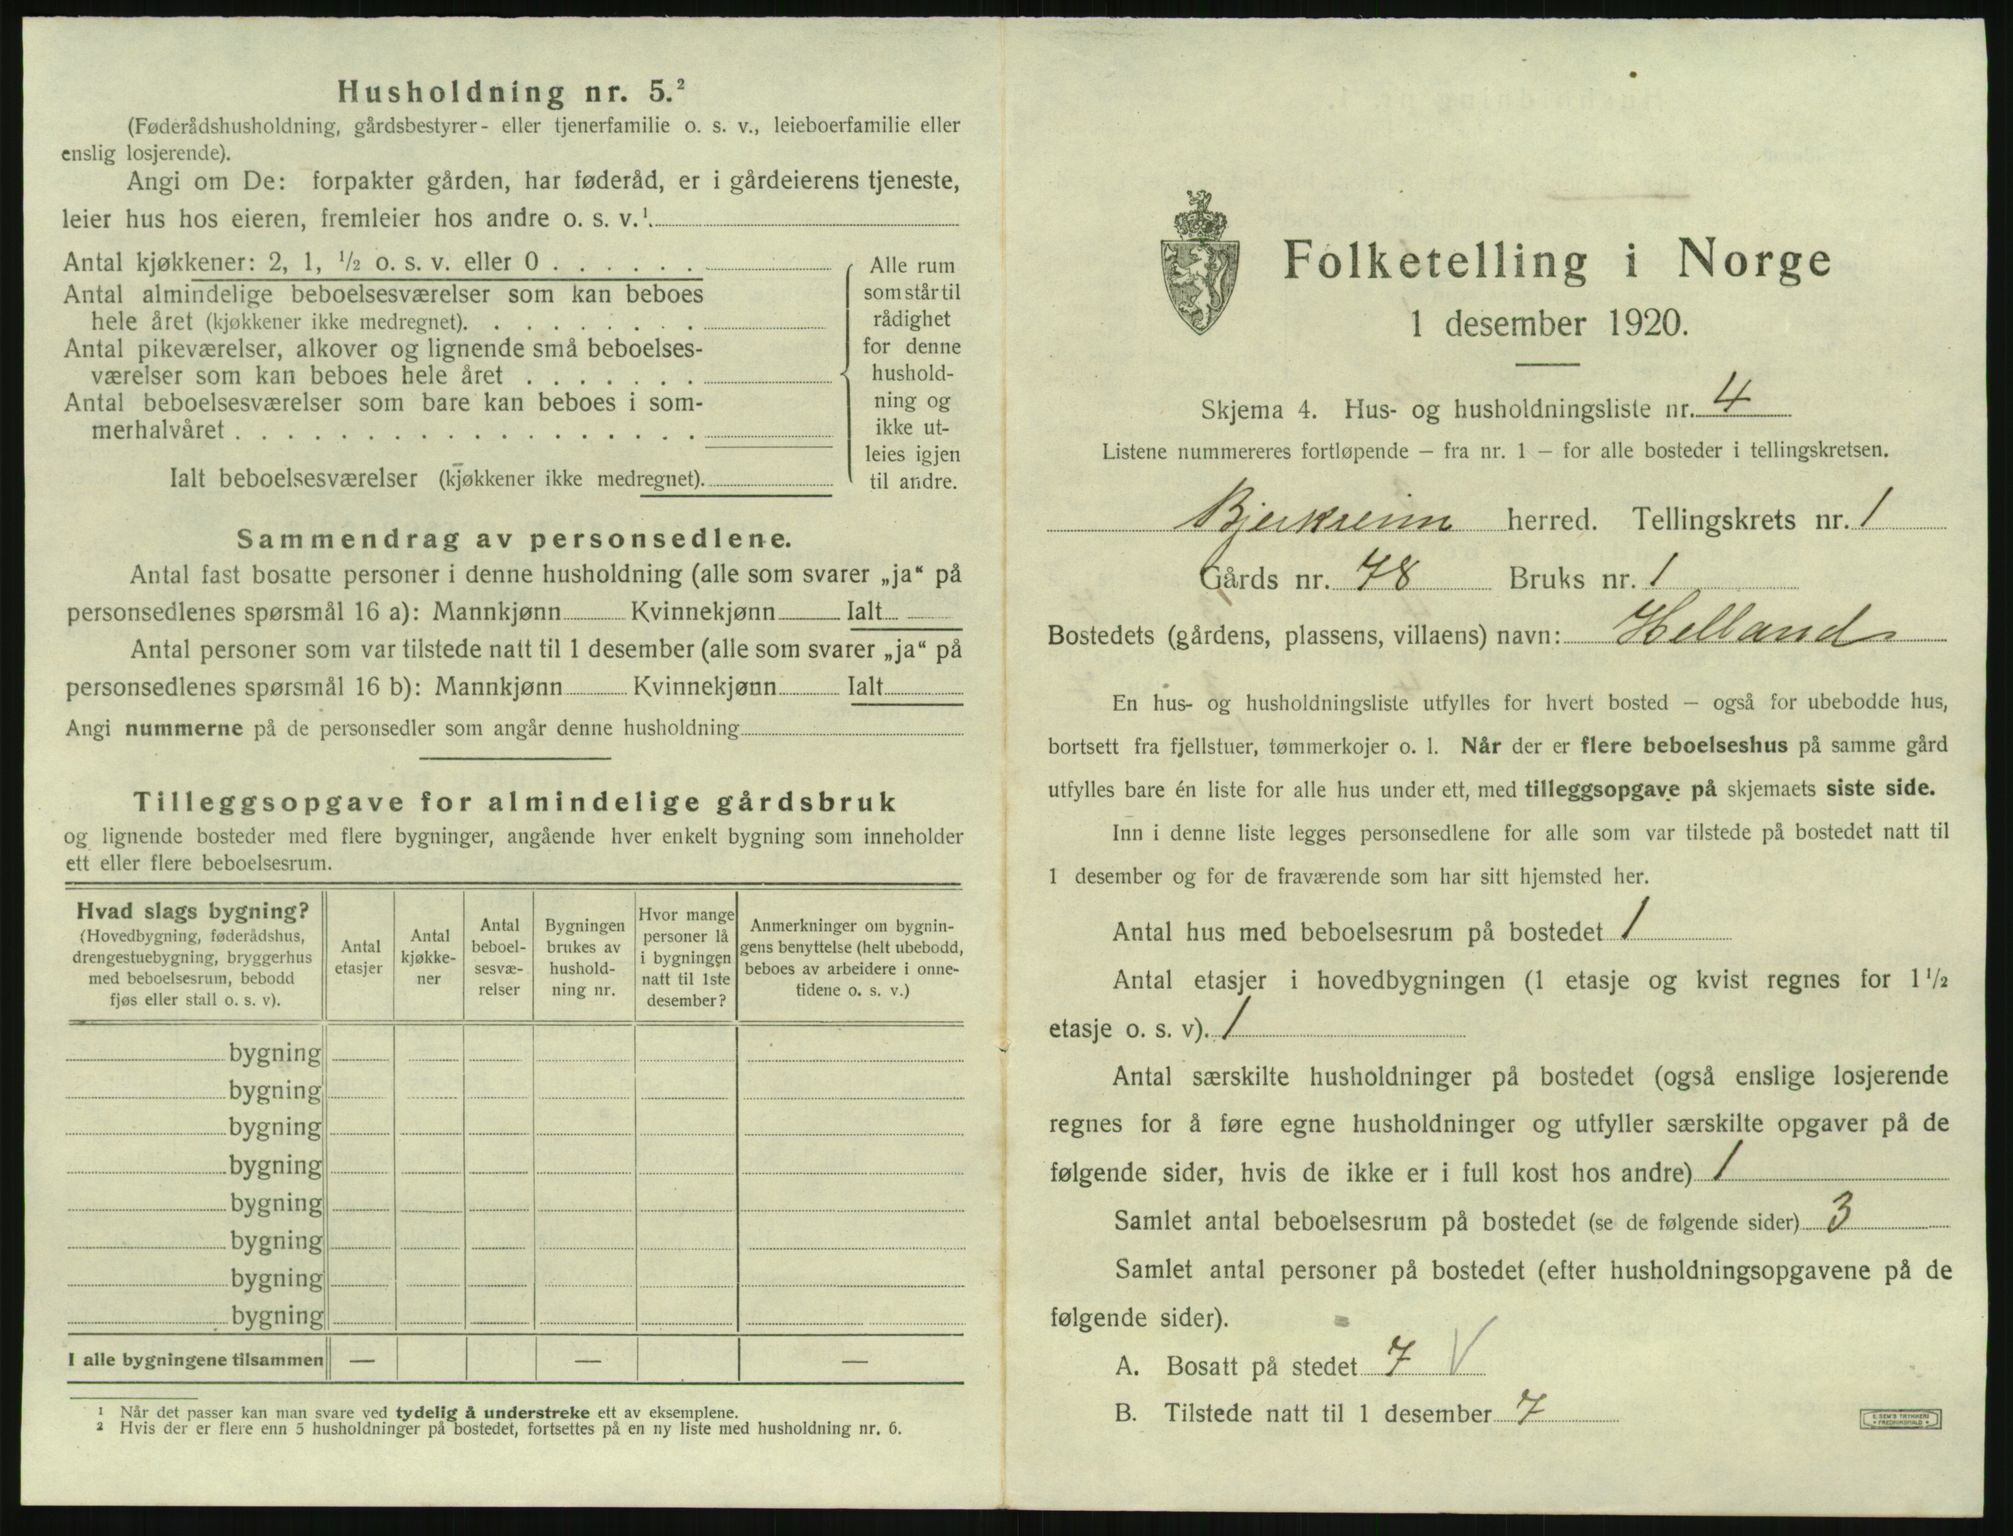 Husholdning nr. 5.²
(Føderådshusholdning, gårdsbestyrer- eller tjenerfamilie o. s. v., leieboerfamilie eller
enslig losjerende).
Angi om De: forpakter gården, har føderåd, er i gårdeierens tjeneste,
leier hus hos eieren, fremleier hos andre o. s. v.¹.
Antal kjøkkener: 2, 1, ½ o. s. v. eller 0 . . . . . .
Antal almindelige beboelsesværelser som kan beboes
hele året (kjøkkener ikke medregnet). . . . . . . . .
Antal pikeværelser, alkover og lignende små beboelses-
værelser som kan beboes hele året . . . . . . .
Antal beboelsesværelser som bare kan beboes i som-
merhalvåret . . . . . . . . . . . . . . . . .
Ialt beboelsesværelser (kjøkkener ikke medregnet).
Alle rum
som står til
rådighet
for denne
hushold-
ning og
ikke ut-
leies igjen
til andre.
Sammendrag av personsedlene.
Antal fast bosatte personer i denne husholdning (alle som svarer „ja“ på
personsedlenes spørsmål 16 a): Mannkjønn Kvinnekjønn Ialt
Antal personer som var tilstede natt til 1 desember (alle som svarer „ja“ på
personsedlenes spørsmål 16 b): Mannkjønn Kvinnekjønn Ialt
Angi nummerne på de personsedler som angår denne husholdning
Tilleggsopgave for almindelige gårdsbruk
og lignende bosteder med flere bygninger, angående hver enkelt bygning som inneholder
ett eller flere beboelsesrum.
Hvad slags bygning?
(Hovedbygning, føderådshus,
drengestuebygning, bryggerhus
med beboelsesrum, bebodd
fjøs eller stall o. s. v).
Antal
etasjer
Antal
kjøkke-
ner
Antal
beboel-
sesvæ-
relser
Bygningen
brukes av
hushold-
ning nr.
Hvor mange
personer lå
i bygningen
natt til 1ste
desember?
Anmerkninger om bygnin-
gens benyttelse (helt ubebodd,
beboes av arbeidere i onne-
tidene o. s. v.)
bygning
bygning
bygning
bygning
bygning
bygning
bygning
bygning
I alle bygningene tilsammen — — —
¹ Når det passer kan man svare ved tydelig å understreke ett av eksemplene.
² Hvis der er flere enn 5 husholdninger på bostedet, fortsettes på en ny liste med husholdning nr. 6.
Folketelling i Norge
1 desember 1920.
Skjema 4. Hus- og husholdningsliste nr. 4
Listene nummereres fortløpende — fra nr. 1 — for alle bosteder i tellingskretsen.
Bjerkreim herred. Tellingskrets nr. 1
Gårds nr. 78 Bruks nr. 1
Bostedets (gårdens, plassens, villaens) navn: Helland
En hus- og husholdningsliste utfylles for hvert bosted — også for ubebodde hus,
bortsett fra fjellstuer, tømmerkojer o. l. Når der er flere beboelseshus på samme gård
utfylles bare én liste for alle hus under ett, med tilleggsopgave på skjemaets siste side.
Inn i denne liste legges personsedlene for alle som var tilstede på bostedet natt til
1 desember og for de fraværende som har sitt hjemsted her.
Antal hus med beboelsesrum på bostedet 1
Antal etasjer i hovedbygningen (1 etasje og kvist regnes for 1½
etasje o. s. v). 1
Antal særskilte husholdninger på bostedet (også enslige losjerende
regnes for å føre egne husholdninger og utfyller særskilte opgaver på de
følgende sider, hvis de ikke er i full kost hos andre) 1
Samlet antal beboelsesrum på bostedet (se de følgende sider) 3
Samlet antal personer på bostedet (efter husholdningsopgavene på de
følgende sider).
A. Bosatt på stedet 7 V
B. Tilstede natt til 1 desember 7
E. SEM'S TRYKKERI
FREDRIKSHALD